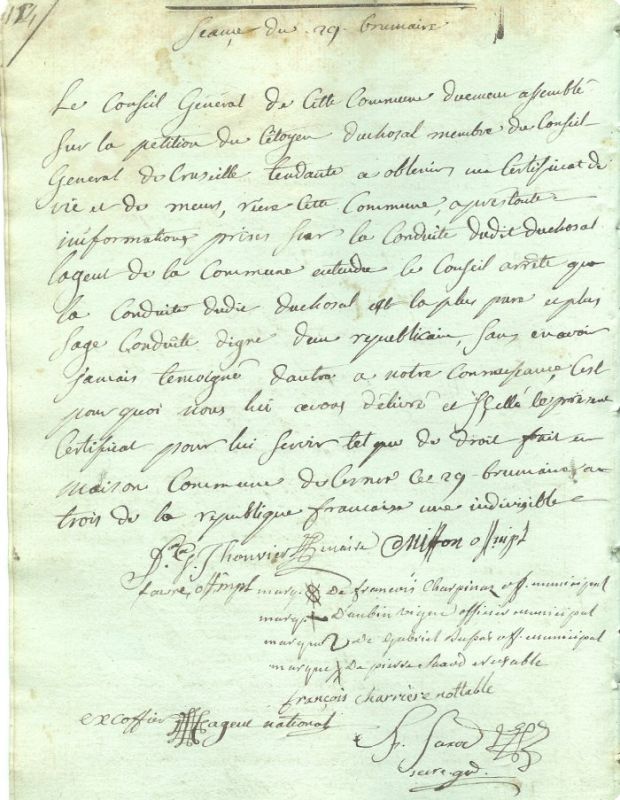 Seance du 29 brumaire
Le Conseil Général de Cette Commune duement assemblé
Sur la petition du Citoyen duchosal membre du Conseil
General de Cruseille tendante a obtenir un Certificat de
vie et de meurs, riere Cette Commune, apres toute
informations prises sur la Conduite dudit duchosal
lagent de la Commune entendu le Conseil arrête que
la Conduite dudit duchosal est la plus pure et plus
sage Conduite digne dun republicain, sans en avoir
jamais temoigné dautre a notre Connoissance, C'est
pour quoi nous lui avons délivré et le présent
Certificat pour lui servir tel que de droit fait en
maison Commune de Cernex le 29 brumaire an
trois de la republique francaise une indivisible
J. Thouvier maire Miffon off mpl
favre off mpl marq. De francois Charpinaz off. municipal
marque D'aubin vigne officier municipal
marque De Gabriel Dupas off. municipal
marque De pierre notable
françois charriere nottable
excoffier agent national
Saxod
secre. gref.